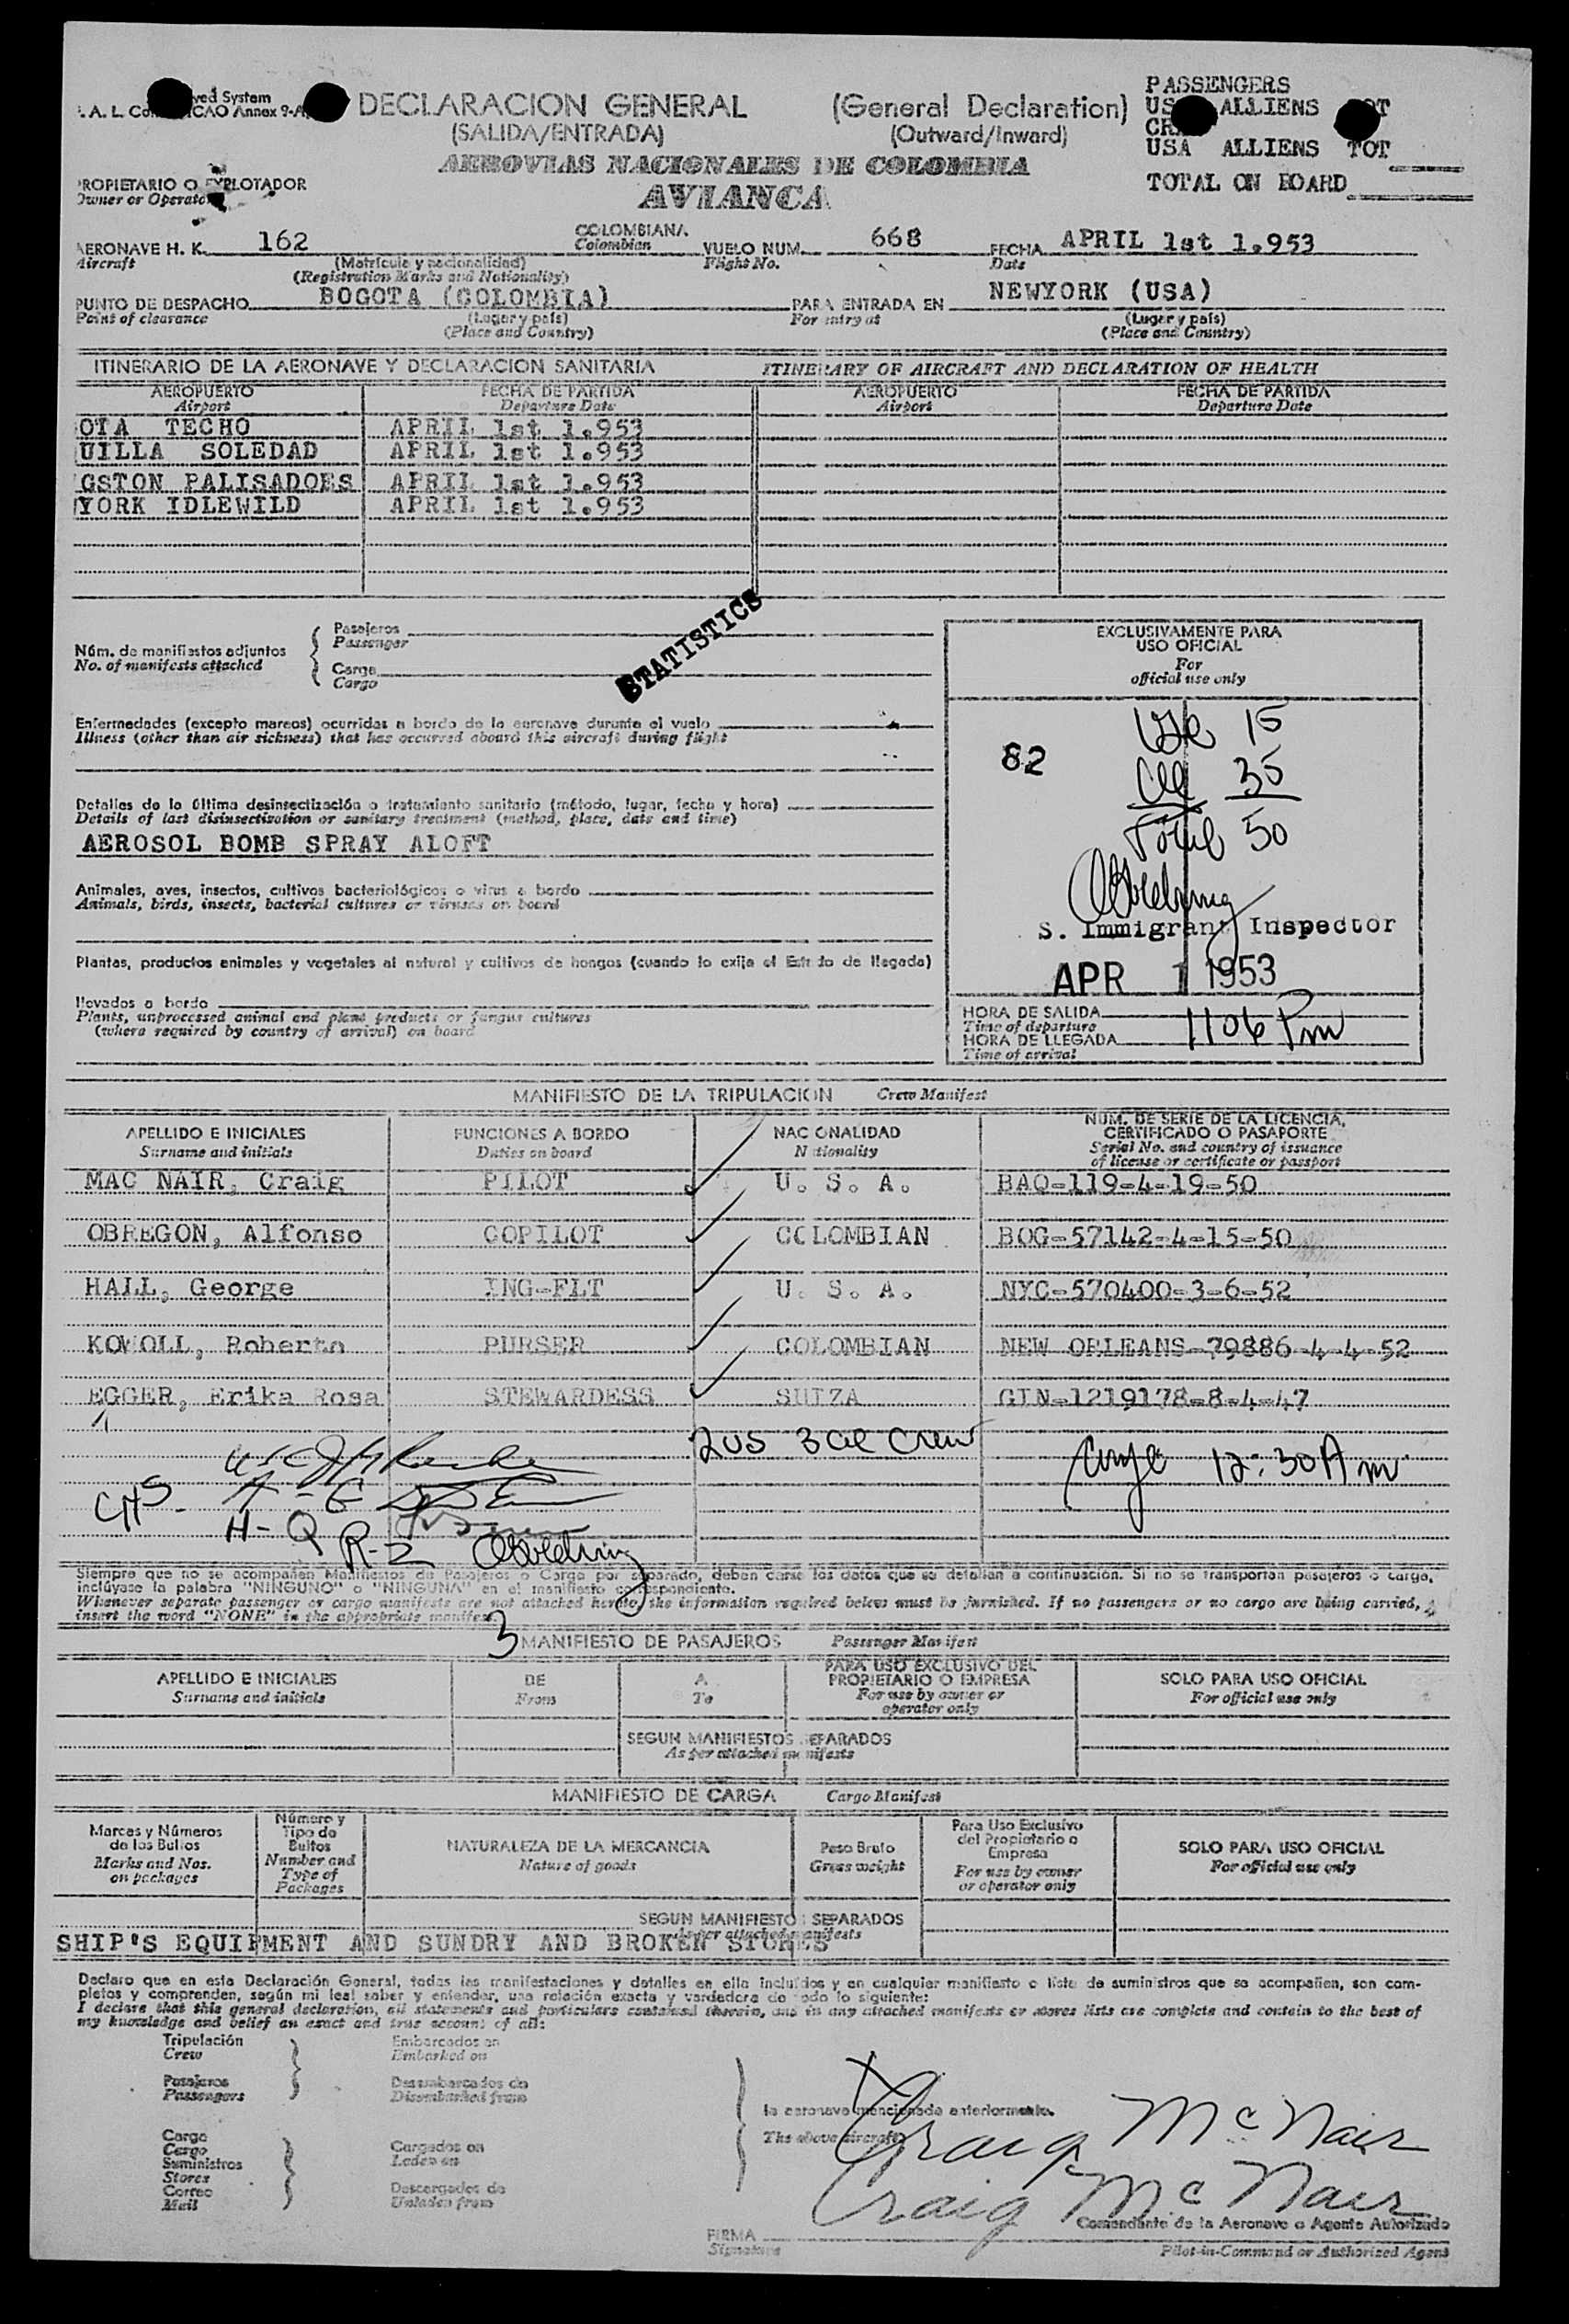 ved System
A. L. Co ICAO Annex 9-A
DECLARACION GENERAL (General Declaration)
(SALIDA/ENTRADA) (Outward/Inward)
AEROVIAS NACIONALES DE COLOMBIA
AVIANCA
PASSENGERS
US ALLIENS OT
CR
USA ALLIENS TOT
TOTAL ON BOARD
ROPIETARIO O EXPLOTADOR
Owner or Operator
AERONAVE H. K. 162 COLOMBIANA VUELO NUM. 668 FECHA APRIL 1st 1.953
Aircraft Colombian Flight No. Date
(Matrícula y nacionalidad)
(Registration Marks and Nationality)
PUNTO DE DESPACHO BOGOTA (COLOMBIA) PARA ENTRADA EN NEWYORK (USA)
Point of clearance (Lugar y país) For entry at (Lugar y país)
(Place and Country) (Place and Country)
ITINERARIO DE LA AERONAVE Y DECLARACION SANITARIA ITINERARY OF AIRCRAFT AND DECLARATION OF HEALTH
AEROPUERTO FECHA DE PARTIDA AEROPUERTO FECHA DE PARTIDA
Airport Departure Date Airport Departure Date
OTA TECHO APRIL 1st 1.953
UILLA SOLEDAD APRIL 1st 1.953
GSTON PALISADOES APRIL 1st 1.953
YORK IDLEWILD APRIL 1st 1.953
STATISTICS
Núm. de manifiestos adjuntos
No. of manifests attached
Pasajeros
Passenger
Carga
Cargo
Enfermedades (excepto mareos) ocurridas a bordo de la aeronave durante el vuelo
Illness (other than air sickness) that has occurred aboard this aircraft during flight
Detalles de la última desinsectización o tratamiento sanitario (método, lugar, fecha y hora)
Details of last disinsectization or sanitary treatment (method, place, date and time)
AEROSOL BOMB SPRAY ALOFT
Animales, aves, insectos, cultivos bacteriológicos o virus a bordo
Animals, birds, insects, bacterial cultures or viruses on board
Plantas, productos animales y vegetales al natural y cultivos de hongos (cuando lo exija el Estado de llegada)
llevados a bordo
Plants, unprocessed animal and plant products or fungus cultures
(where required by country of arrival) on board
EXCLUSIVAMENTE PARA
USO OFICIAL
For
official use only
15
82
35
Total 50
S. Immigrant Inspector
APR 1 1953
HORA DE SALIDA
Time of departure
1106 Pm
HORA DE LLEGADA
Time of arrival
MANIFIESTO DE LA TRIPULACION Crew Manifest
APELLIDO E INICIALES FUNCIONES A BORDO NACIONALIDAD NUM. DE SERIE DE LA LICENCIA,
CERTIFICADO O PASAPORTE
Surname and initials Duties on board Nationality Serial No. and country of issuance
of license or certificate or passport
MAC NAIR, Craig PILOT U. S. A. BAQ-119-4-19-50
OBREGON, Alfonso COPILOT COLOMBIAN BOG-57142-4-15-50
HALL, George ING-FLT U. S. A. NYC-570400-3-6-52
KOWOLL, Roberto PURSER COLOMBIAN NEW ORLEANS-79886-4-4-52
EGGER, Erika Rosa STEWARDESS SUIZA GIN-1219178-8-4-47
2 US 3 al Crew
12:30 A m
CHS -
H - Q
R-2
Siempre que no se acompañen Manifiestos de Pasajeros o Carga por separado, deben darse los datos que se detallan a continuación. Si no se transportan pasajeros o carga,
inclúyase la palabra "NINGUNO" o "NINGUNA" en el manifiesto correspondiente.
Whenever separate passenger or cargo manifests are not attached hereto, the information required below must be furnished. If no passengers or no cargo are being carried,
insert the word "NONE" in the appropriate manifest.
3
MANIFIESTO DE PASAJEROS Passenger Manifest
APELLIDO E INICIALES DE A PARA USO EXCLUSIVO DEL SOLO PARA USO OFICIAL
PROPIETARIO O EMPRESA
Surname and initials From To For use by owner or For official use only
operator only
SEGUN MANIFIESTOS SEPARADOS
As per attached manifests
MANIFIESTO DE CARGA Cargo Manifest
Marcas y Números
de los Bultos
Marks and Nos.
on packages
Número y
Tipo de
Bultos
Number and
Type of
Packages
NATURALEZA DE LA MERCANCIA
Nature of goods
Peso Bruto
Gross weight
Para Uso Exclusivo
del Propietario o
Empresa
For use by owner
or operator only
SOLO PARA USO OFICIAL
For official use only
SEGUN MANIFIESTOS SEPARADOS
As per attached manifests
SHIP'S EQUIPMENT AND SUNDRY AND BROKEN STORES
Declaro que en esta Declaración General, todas las manifestaciones y detalles en ella incluídos y en cualquier manifiesto o lista de suministros que se acompañen, son com-
pletos y comprenden, según mi leal saber y entender, una relación exacta y verdadera de todo lo siguiente:
I declare that this general declaration, all statements and particulars contained therein, and in any attached manifests or stores lists are complete and contain to the best of
my knowledge and belief an exact and true account of all:
Tripulación
Crew
Pasajeros
Passengers
Embarcados en
Embarked on
Desembarcados de
Disembarked from
Carga
Cargo
Suministros
Stores
Correo
Mail
Cargados en
Laden on
Descargados de
Unladen from
la aeronave mencionada anteriormente.
The above aircraft
Craig McNair
Craig McNair
FIRMA
Signature
Comandante de la Aeronave o Agente Autorizado
Pilot-in-Command or Authorized Agent